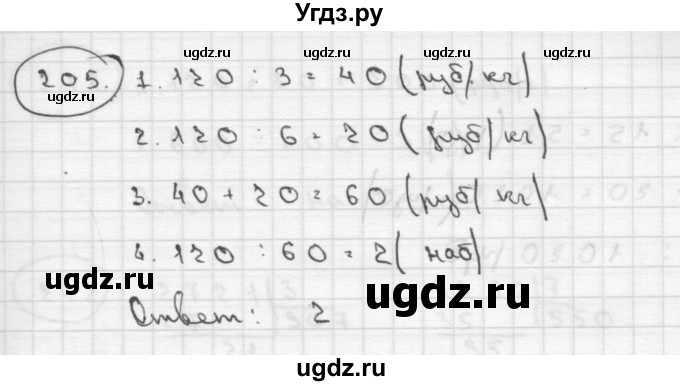 Угдз.ру
ugdz.ru ugdz.ru ugdz.ru
205. 1. 120 : 3 = 40 (руб/кг)
ugdz.ru
2. 120 : 6 = 20 (руб/кг)
ugdz.ru ugdz.ru ugdz.ru
3. 40 + 20 = 60 (руб/кг)
ugdz.ru ugdz.ru ugdz.ru
4. 120 : 60 = 2 (наб)
ugdz.ru
ugdz.ru
Ответ: 2
ugdz.ru